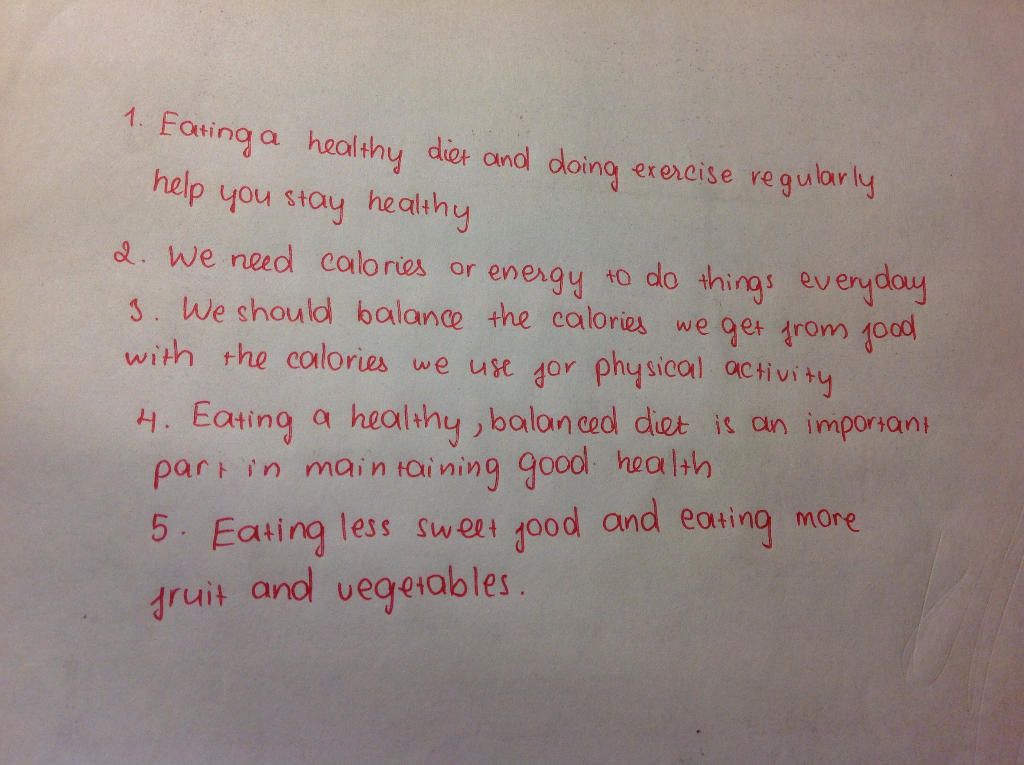 1. Eating a healthy diet and doing exercise regularly
help you stay healthy
2. We need calories or energy to do things everyday
3. We should balance the calories we get from food
with the calories we use for physical activity
4. Eating a healthy, balanced diet is an important
part in maintaining good health
5. Eating less sweet food and eating more
fruit and vegetables.